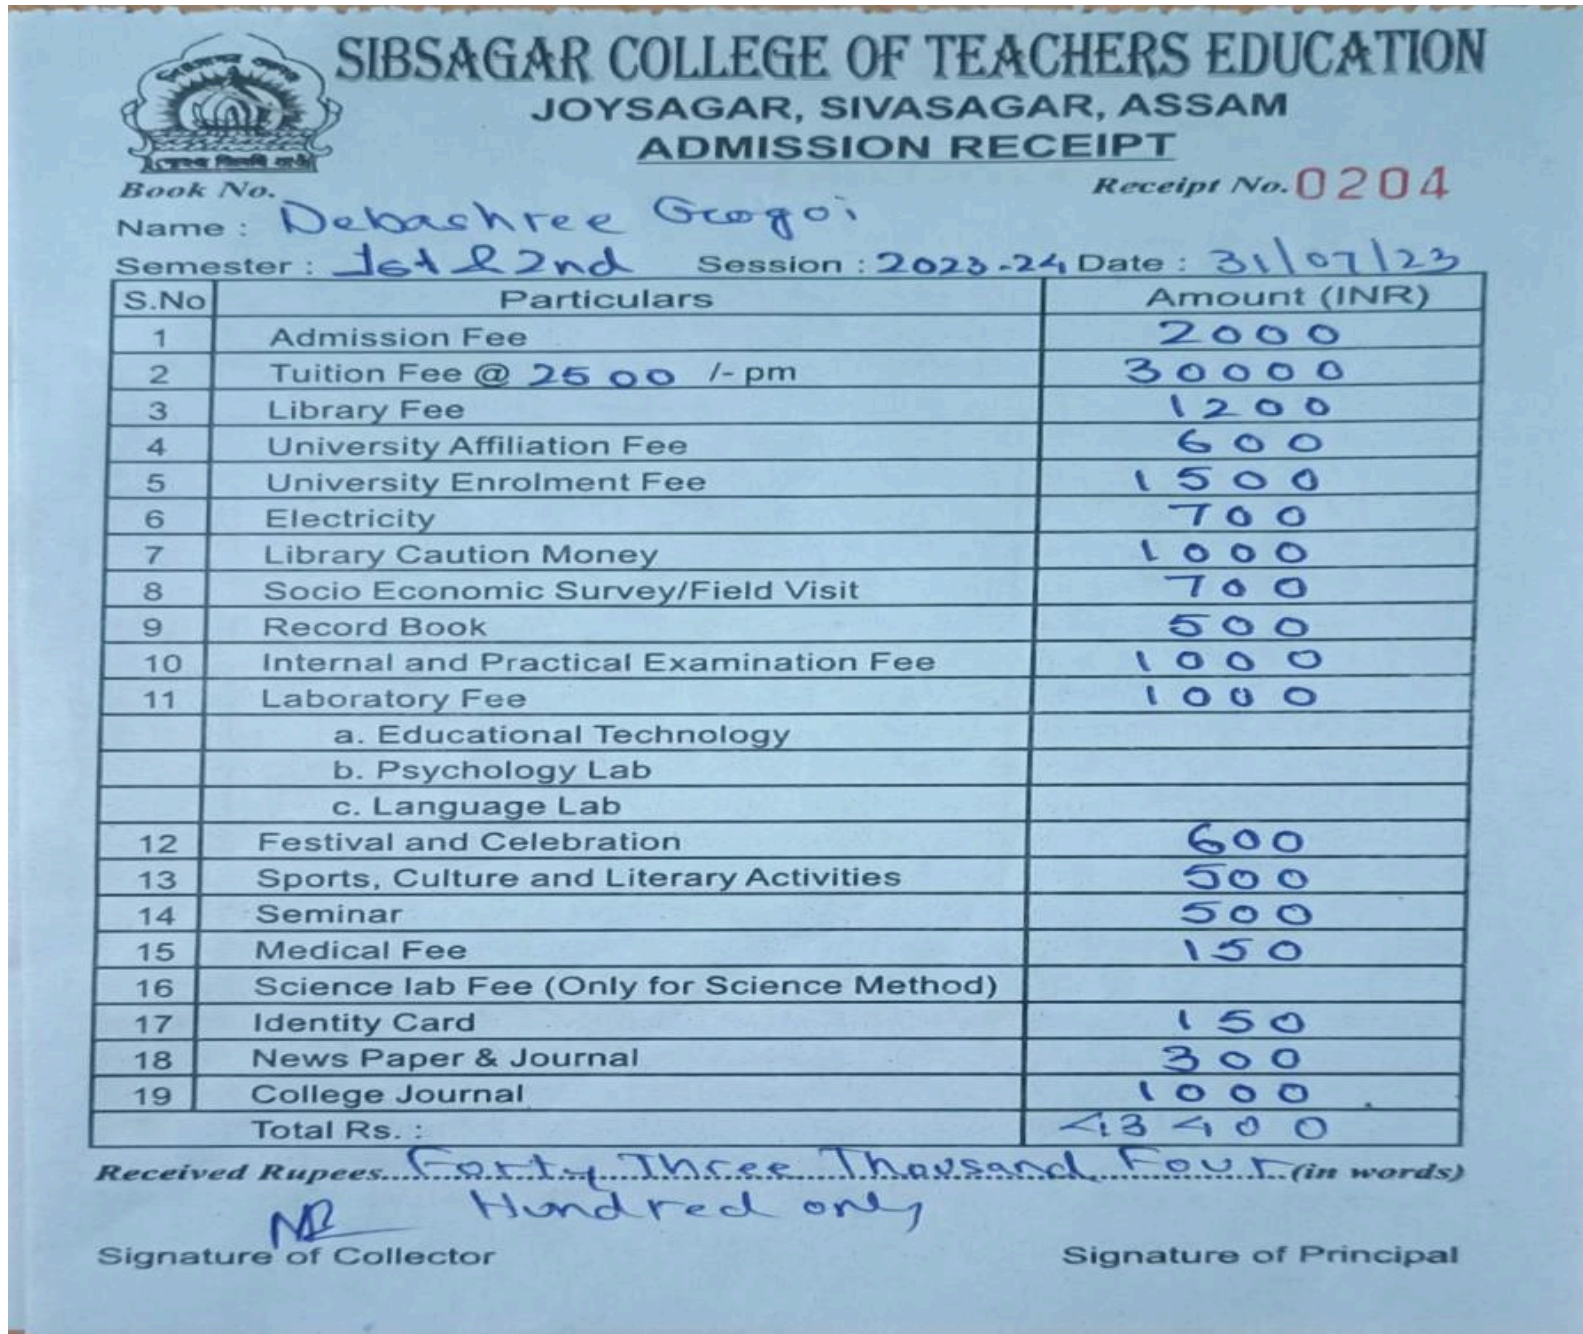 SIBSAGAR COLLEGE OF TEACHERS EDUCATION
JOYSAGAR, SIVASAGAR, ASSAM
ADMISSION RECEIPT
Book No. Receipt No. 0204
Name : Debashree Gogoi
Semester : 1st & 2nd Session : 2023-24 Date : 31/07/23
S.No Particulars Amount (INR)
1 Admission Fee 2000
2 Tuition Fee @ 2500 /- pm 30000
3 Library Fee 1200
4 University Affiliation Fee 600
5 University Enrolment Fee 1500
6 Electricity 700
7 Library Caution Money 1000
8 Socio Economic Survey/Field Visit 700
9 Record Book 500
10 Internal and Practical Examination Fee 1000
11 Laboratory Fee 1000
a. Educational Technology
b. Psychology Lab
c. Language Lab
12 Festival and Celebration 600
13 Sports, Culture and Literary Activities 500
14 Seminar 500
15 Medical Fee 150
16 Science lab Fee (Only for Science Method)
17 Identity Card 150
18 News Paper & Journal 300
19 College Journal 1000
Total Rs. : 43400
Received Rupees....Forty Three Thousand Four (in words)
Hundred only
Signature of Collector Signature of Principal